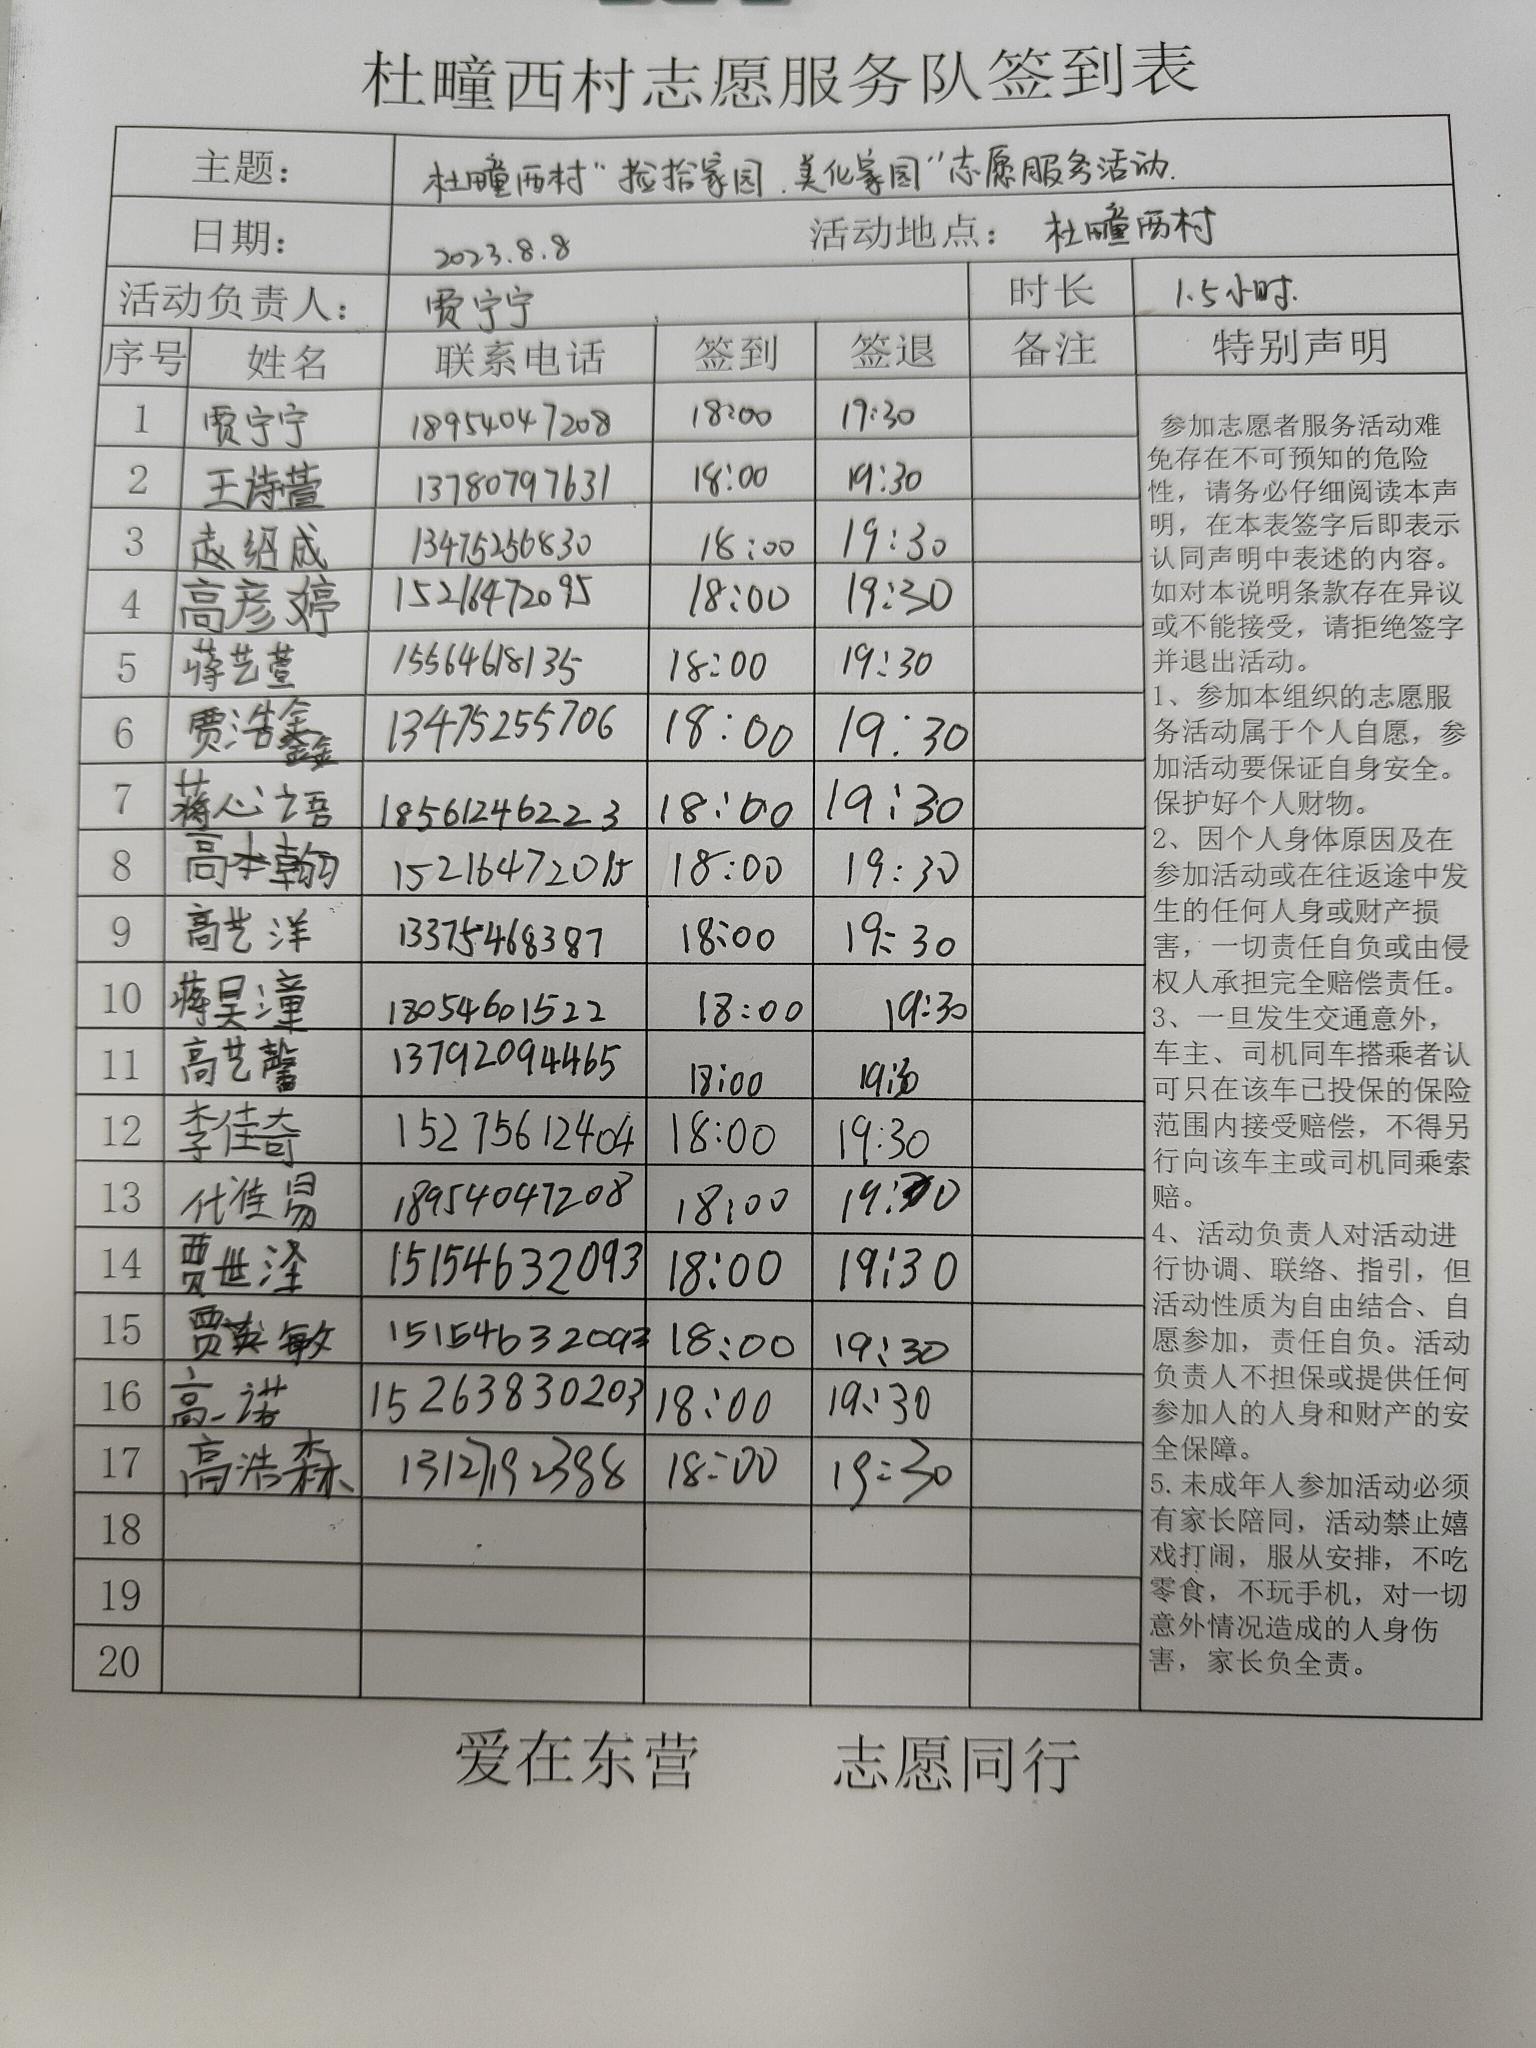 杜疃西村志愿服务队签到表
主题： 杜疃西村"捡拾家园、美化家园"志愿服务活动.
日期： 2023.8.8 活动地点： 杜疃西村
活动负责人： 贾宁宁 时长 1.5小时.
序号 姓名 联系电话 签到 签退 备注 特别声明
1 贾宁宁 18954047208 18:00 19:30
2 王诗萱 13780797631 18:00 19:30
3 赵绍成 13475256830 18:00 19:30
4 高彦婷 15216472095 18:00 19:30
5 蒋艺萱 15564618135 18:00 19:30
6 贾浩鑫 13475255706 18:00 19:30
7 蒋心语 18561246223 18:00 19:30
8 高翰 18:00 19:30
9 高艺洋 13375468387 18:00 19:30
10 蒋昊潼 18054601522 18:00 19:30
11 高艺馨 13792094465 18:00 19:30
12 李佳奇 15275612404 18:00 19:30
13 代佳易 18954047208 18:00 19:30
14 贾世泽 15154632093 18:00 19:30
15 贾英敏 15154632093 18:00 19:30
16 高一诺 15263830203 18:00 19:30
17 高浩森 18:00 19:30
18
19
20
参加志愿者服务活动难
免存在不可预知的危险
性，请务必仔细阅读本声
明，在本表签字后即表示
认同声明中表述的内容。
如对本说明条款存在异议
或不能接受，请拒绝签字
并退出活动。
1、参加本组织的志愿服
务活动属于个人自愿，参
加活动要保证自身安全。
保护好个人财物。
2、因个人身体原因及在
参加活动或在往返途中发
生的任何人身或财产损
害，一切责任自负或由侵
权人承担完全赔偿责任。
3、一旦发生交通意外，
车主、司机同车搭乘者认
可只在该车已投保的保险
范围内接受赔偿，不得另
行向该车主或司机同乘索
赔。
4、活动负责人对活动进
行协调、联络、指引，但
活动性质为自由结合、自
愿参加，责任自负。活动
负责人不担保或提供任何
参加人的人身和财产的安
全保障。
5.未成年人参加活动必须
有家长陪同，活动禁止嬉
戏打闹，服从安排，不吃
零食，不玩手机，对一切
意外情况造成的人身伤
害，家长负全责。
爱在东营 志愿同行